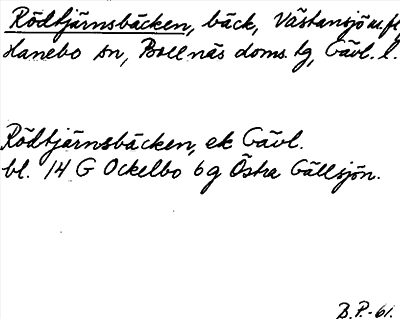 Rödtjärnsbäcken, bäck, Västansjö m.fl,
Hanebo sn, Bollnäs doms. tg, Gävl. l.
Rödtjärnsbäcken, ek Gävl.
bl. 14 G Ockelbo 6g Östra Gällsjön.
B.P.-61.